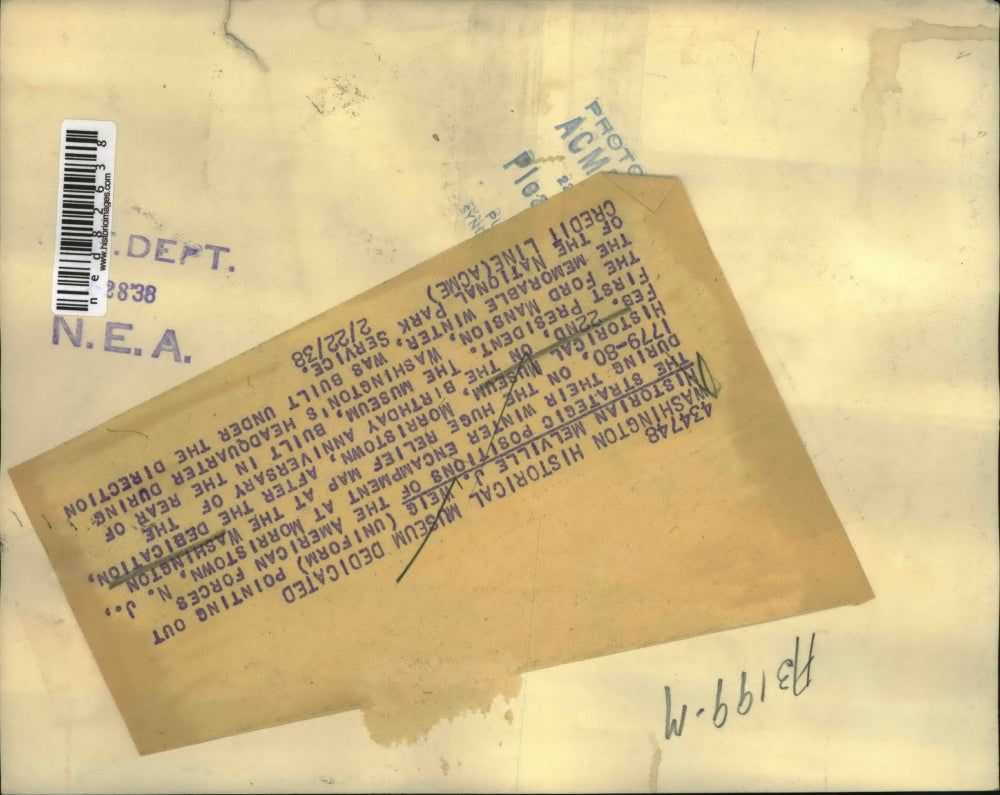 434748
WASHINGTON HISTORICAL MUSEUM DEDICATED
HISTORIAN MELVILLE J. NEIG (UNIFORM) POINTING OUT
THE STRATEGIC POSITIONS OF THE AMERICAN FORCES
DURING THEIR WINTER ENCAMPMENT AT MORRISTOWN, N. J.,
1779-80, ON THE HUGE RELIEF MAP AT THE WASHINGTON
HISTORICAL MUSEUM, MORRISTOWN, AFTER THE DEDICATION,
FEB. 22ND, ON THE BIRTHDAY ANNIVERSARY OF THE
FIRST PRESIDENT. THE MUSEUM, BUILT IN THE REAR OF
THE FORD MANSION, WASHINGTON'S HEADQUARTER DURING
THE MEMORABLE WINTER, WAS BUILT UNDER THE DIRECTION
OF THE NATIONAL PARK SERVICE.
CREDIT LINE (ACME) 2/22/38
ned82638
www.historicimages.com
DEPT.
2838
N.E.A.
PHOTO
ACM
A3199-M